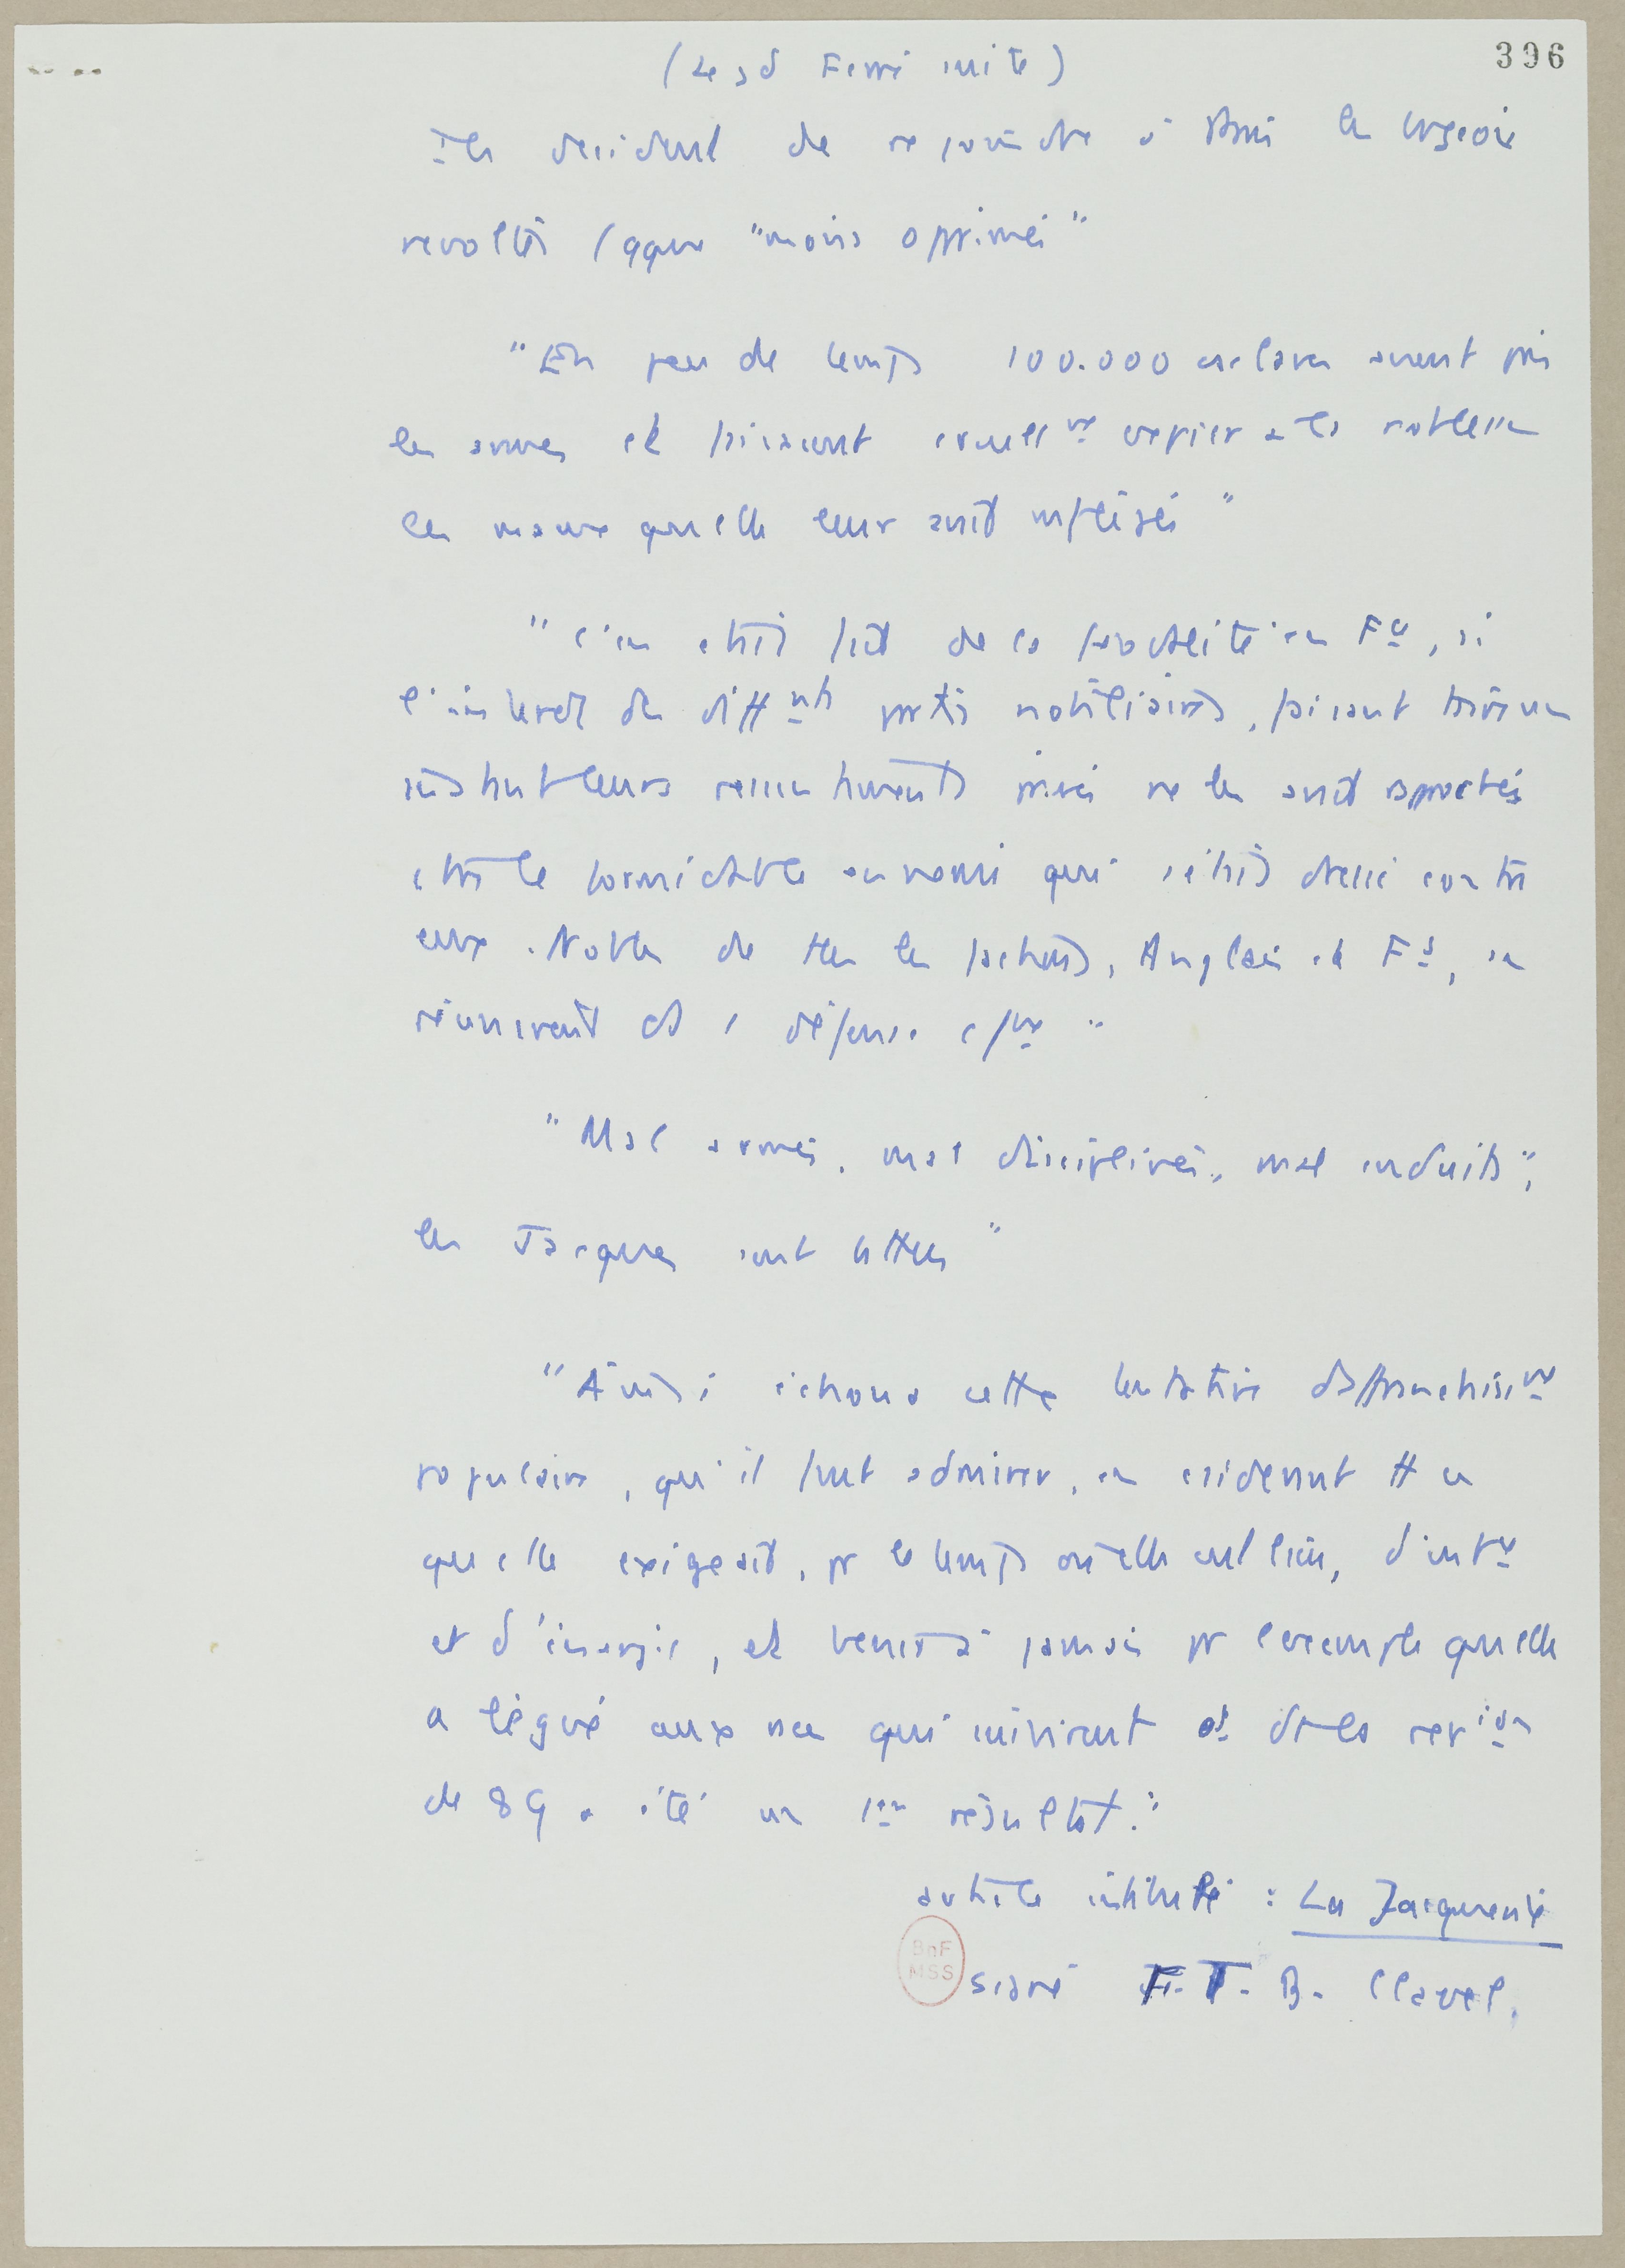 396
(Le gd Ferré invite)
Ils decident de rejoindre à Paris les bourgeois
revoltés (qque "moins opprimés"
"En peu de temps 100.000 esclaves avaient pris
les armes et faisaient cruell nt expier à la noblesse
les maux qu'elle leur avait infligés"
"C'en était fait de la féodalité en Fce, si
l'interet des diff nts partis nobiliaires, faisant trève
ressentiments privés ne les avait rapprochés
contre le formidable ennemi qui s'était dressé contre
eux. Nobles de ttes les factions, Anglais et Fs, se
réunirent et défense
"Mal armés, mal disciplinés, mal conduits",
les Jacques sont battus"
"Ainsi échoua cette tentative d'affranchisse nt
populaire, qu'il faut admirer, en considérant tt ce
qu'elle exigeait, pr le temps où elle eut lieu,
et d'énergie, et à jamais pr l'exemple qu'elle
a légué aux races qui suivirent et dt la rev ion
de 89 a été un 1er résultat."
article intitulé : La Jacquerie
BnF
MSS
signé F.T.B. Clavel.